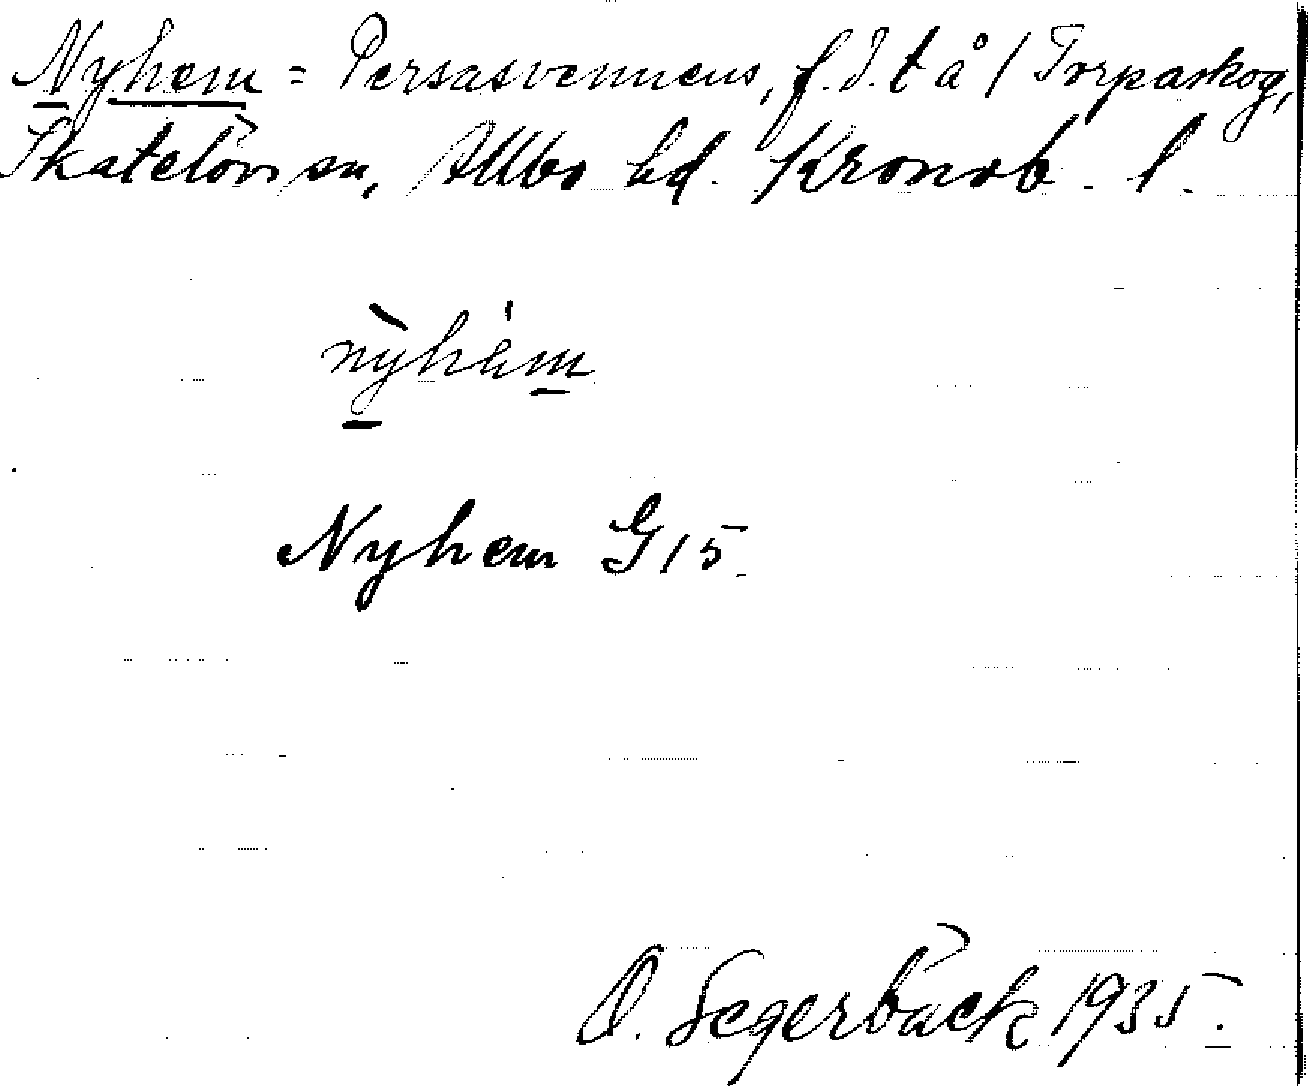 Nyhem = Persasvenneus, f.d. t å / Torpaskog,
Skatelövs sn, Allbo hd. Kronob. l.
nỳhèm
Nyhem G15.
O. Segerbäck 1935.